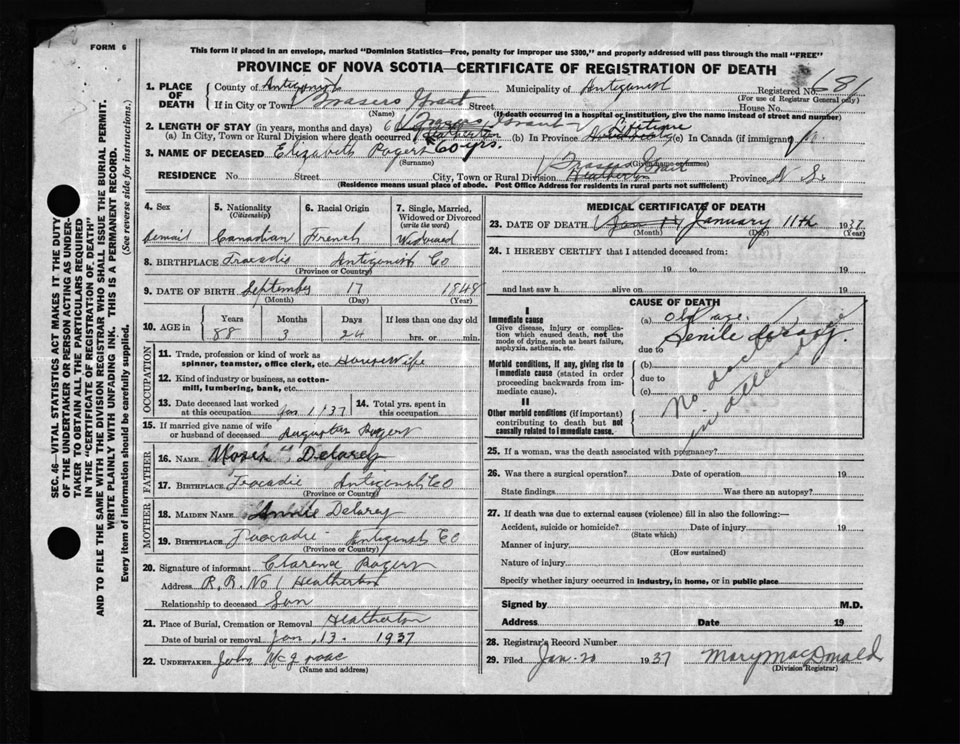 FORM 6
This form if placed in an envelope, marked "Dominion Statistics—Free, penalty for improper use $300," and properly addressed will pass through the mail "FREE"
PROVINCE OF NOVA SCOTIA—CERTIFICATE OF REGISTRATION OF DEATH
1. PLACE OF DEATH
County of Antigonish Municipality of Antigonish Registered No. 681
(For use of Registrar General only)
If in City or Town Frasers Grant Street House No.
(Name) (If death occurred in a hospital or institution, give the name instead of street and number)
2. LENGTH OF STAY (in years, months and days) Frasers Grant
(a) In City, Town or Rural Division where death occurred Heatherton 60 yrs. (b) In Province (c) In Canada (if immigrant)
3. NAME OF DECEASED Elizabeth Rogers
(Surname) (Given name or names)
RESIDENCE No. Street City, Town or Rural Division Frasers Grant Heatherton Province N. S.
(Residence means usual place of abode. Post Office Address for residents in rural parts not sufficient)
SEC. 46—VITAL STATISTICS ACT MAKES IT THE DUTY
OF THE UNDERTAKER OR PERSON ACTING AS UNDER-
TAKER TO OBTAIN ALL THE PARTICULARS REQUIRED
IN THE "CERTIFICATE OF REGISTRATION OF DEATH"
AND TO FILE THE SAME WITH THE DIVISION REGISTRAR WHO SHALL ISSUE THE BURIAL PERMIT.
WRITE PLAINLY WITH UNFADING INK. THIS IS A PERMANENT RECORD.
Every item of information should be carefully supplied. (See reverse side for instructions.)
4. Sex 5. Nationality (Citizenship) 6. Racial Origin 7. Single, Married, Widowed or Divorced (write the word)
Canadian French Widowed
8. BIRTHPLACE Tracadie Antigonish Co
(Province or Country)
9. DATE OF BIRTH September 17 1848
(Month) (Day) (Year)
10. AGE in Years Months Days If less than one day old
88 3 24 hrs. or min.
OCCUPATION
11. Trade, profession or kind of work as
spinner, teamster, office clerk, etc. House Wife
12. Kind of industry or business, as cotton-
mill, lumbering, bank, etc.
13. Date deceased last worked at this occupation Jan 1/37 14. Total yrs. spent in this occupation
15. If married give name of wife or husband of deceased Augustan Rogers
FATHER
16. NAME Delorey
17. BIRTHPLACE Tracadie Antigonish Co
(Province or Country)
MOTHER
18. MAIDEN NAME Delorey
19. BIRTHPLACE Tracadie Antigonish Co
(Province or Country)
20. Signature of informant Clarence Rogers
Address R.R. No 1 Heatherton
Relationship to deceased Son
21. Place of Burial, Cremation or Removal Heatherton
Date of burial or removal Jan, 13. 1937
22. UNDERTAKER John
(Name and address)
MEDICAL CERTIFICATE OF DEATH
23. DATE OF DEATH January 11th 1937
(Month) (Day) (Year)
24. I HEREBY CERTIFY that I attended deceased from:
19 to 19
and last saw h alive on 19
CAUSE OF DEATH
I
Immediate cause
Give disease, injury or complica-
tion which caused death, not the
mode of dying, such as heart failure,
asphyxia, asthenia, etc.
(a) Old age.
Senile
due to
Morbid conditions, if any, giving rise to
immediate cause (stated in order
proceeding backwards from im-
mediate cause).
(b)
due to
(c)
No doctor in attendance
II
Other morbid conditions (if important)
contributing to death but not
causally related to immediate cause.
25. If a woman, was the death associated with pregnancy?
26. Was there a surgical operation? Date of operation 19
State findings Was there an autopsy?
27. If death was due to external causes (violence) fill in also the following:—
Accident, suicide or homicide? Date of injury 19
(State which)
Manner of injury
(How sustained)
Nature of injury
Specify whether injury occurred in industry, in home, or in public place
Signed by M.D.
Address Date 19
28. Registrar's Record Number
29. Filed Jan. 20 1937 Mary MacDonald
(Division Registrar)